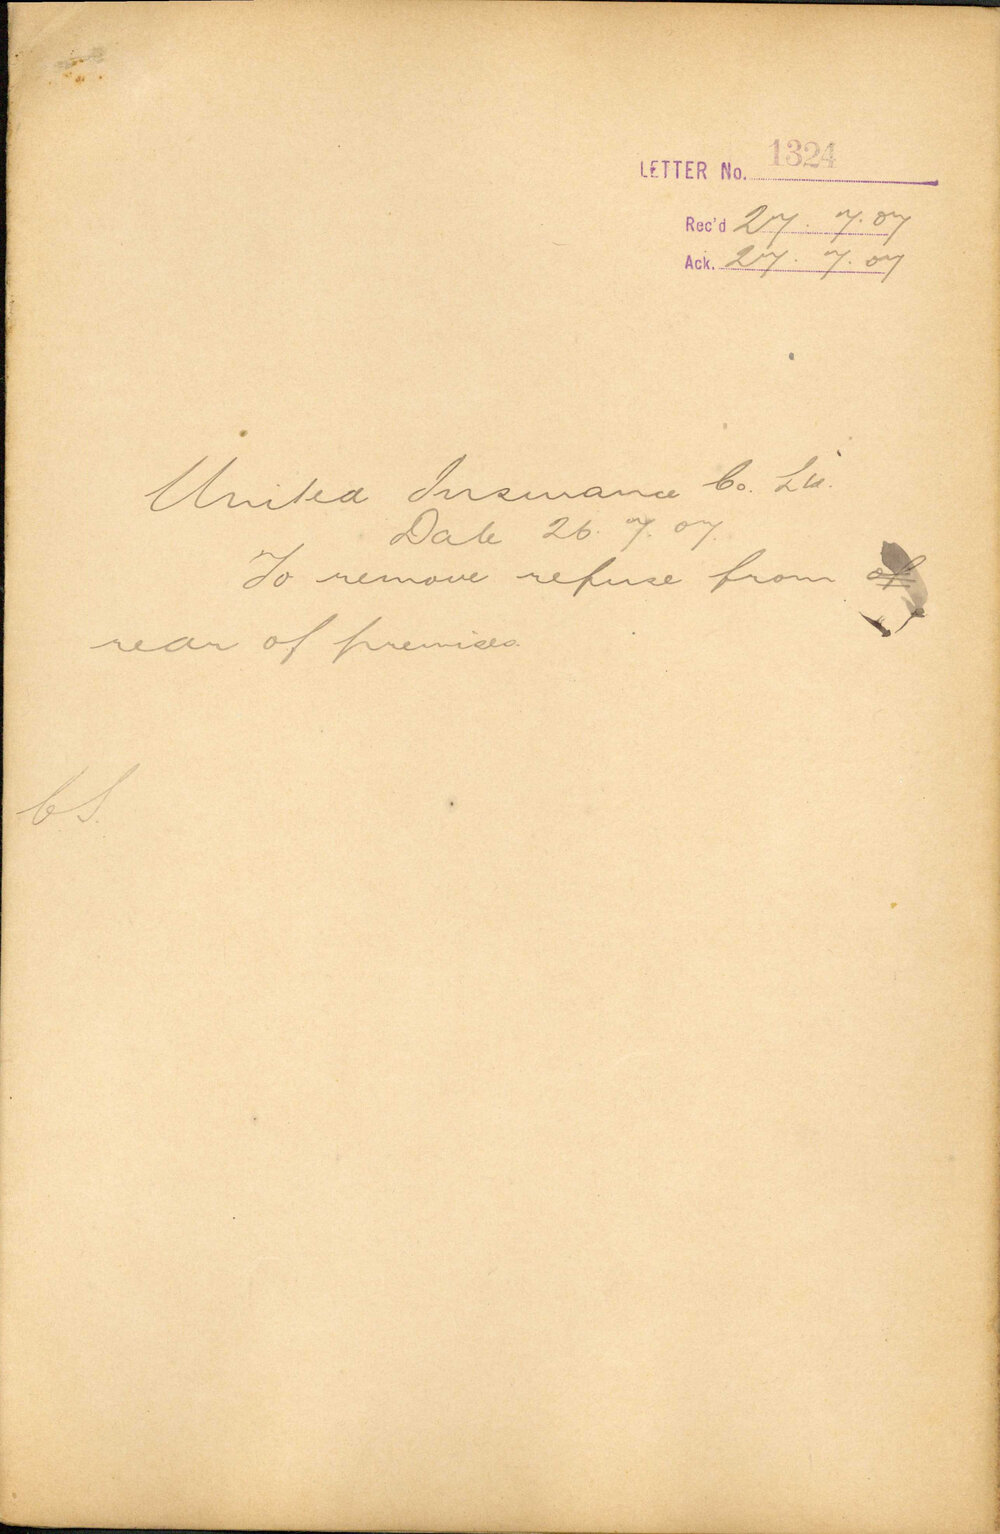 LETTER No. 1324
Rec'd 27. 7. 07
Ack. 27. 7. 07
United Insurance Co. Ltd.
Date 26. 7. 07.
To remove refuse from of
rear of premises.
C.S.